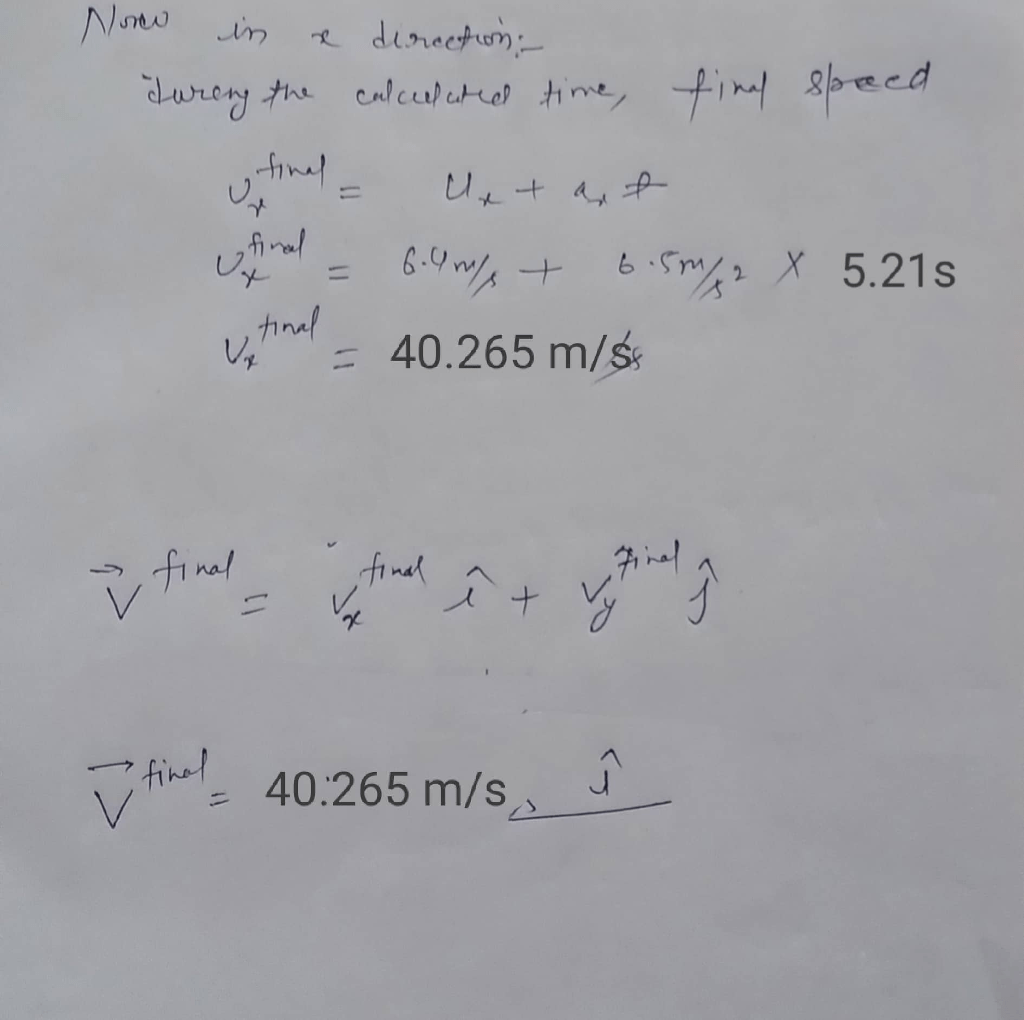 Now in x direction:-
during the calculated time, final speed
v_x^final = u_x + a_x t
v_x^final = 6.4 m/s + 6.5 m/s² × 5.21s
v_x^final = 40.265 m/s
v⃗^final = v_x^final î + v_y^final ĵ
v⃗^final = 40.265 m/s î